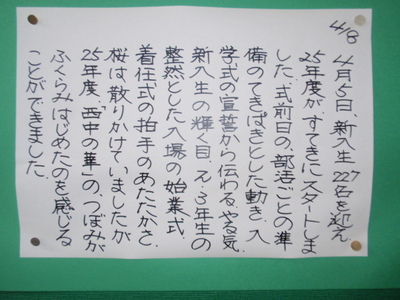 4/8
4月5日、新入生227名を迎え
25年度が、すてきにスタートしま
した。式前日の、部活ごとの準
備のてきぱきとした動き、入
学式の宣誓から伝わる、やる気、
新入生の輝く目、2・3年生の
整然とした入場の始業式、
着任式の拍手のあたたかさ、
桜は散りかけていましたが
25年度、「西中の華」の、つぼみが
ふくらみはじめたのを感じる
ことができました。